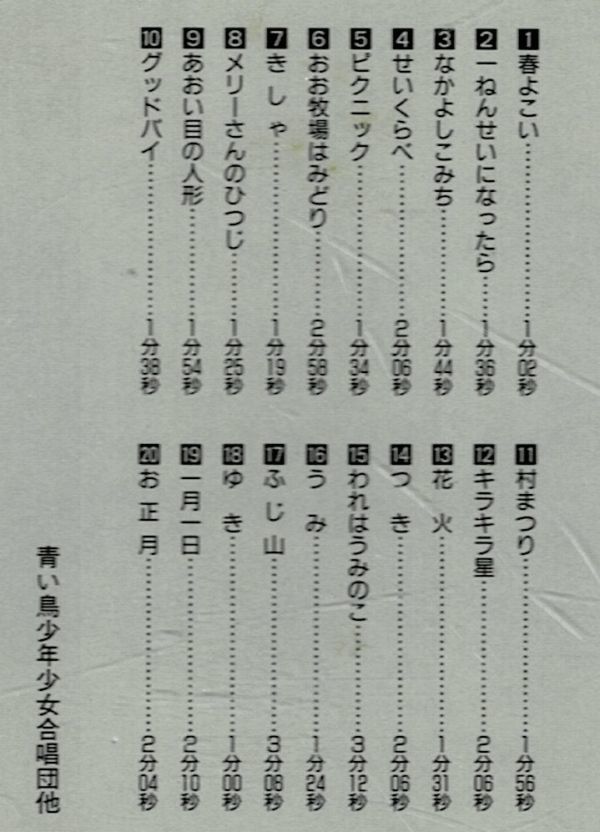 1 春よこい……………1分02秒
2 一ねんせいになったら……1分36秒
3 なかよしこみち…………1分44秒
4 せいくらべ……………2分06秒
5 ピクニック……………1分34秒
6 おお牧場はみどり………2分58秒
7 きしゃ………………1分19秒
8 メリーさんのひつじ……1分25秒
9 あおい目の人形…………1分54秒
10 グッドバイ……………1分38秒
11 村まつり……………1分56秒
12 キラキラ星……………2分06秒
13 花火………………1分31秒
14 つき………………2分06秒
15 われはうみのこ…………3分12秒
16 うみ………………1分24秒
17 ふじ山………………3分08秒
18 ゆき………………1分00秒
19 一月一日……………2分10秒
20 お正月………………2分04秒
青い鳥少年少女合唱団他